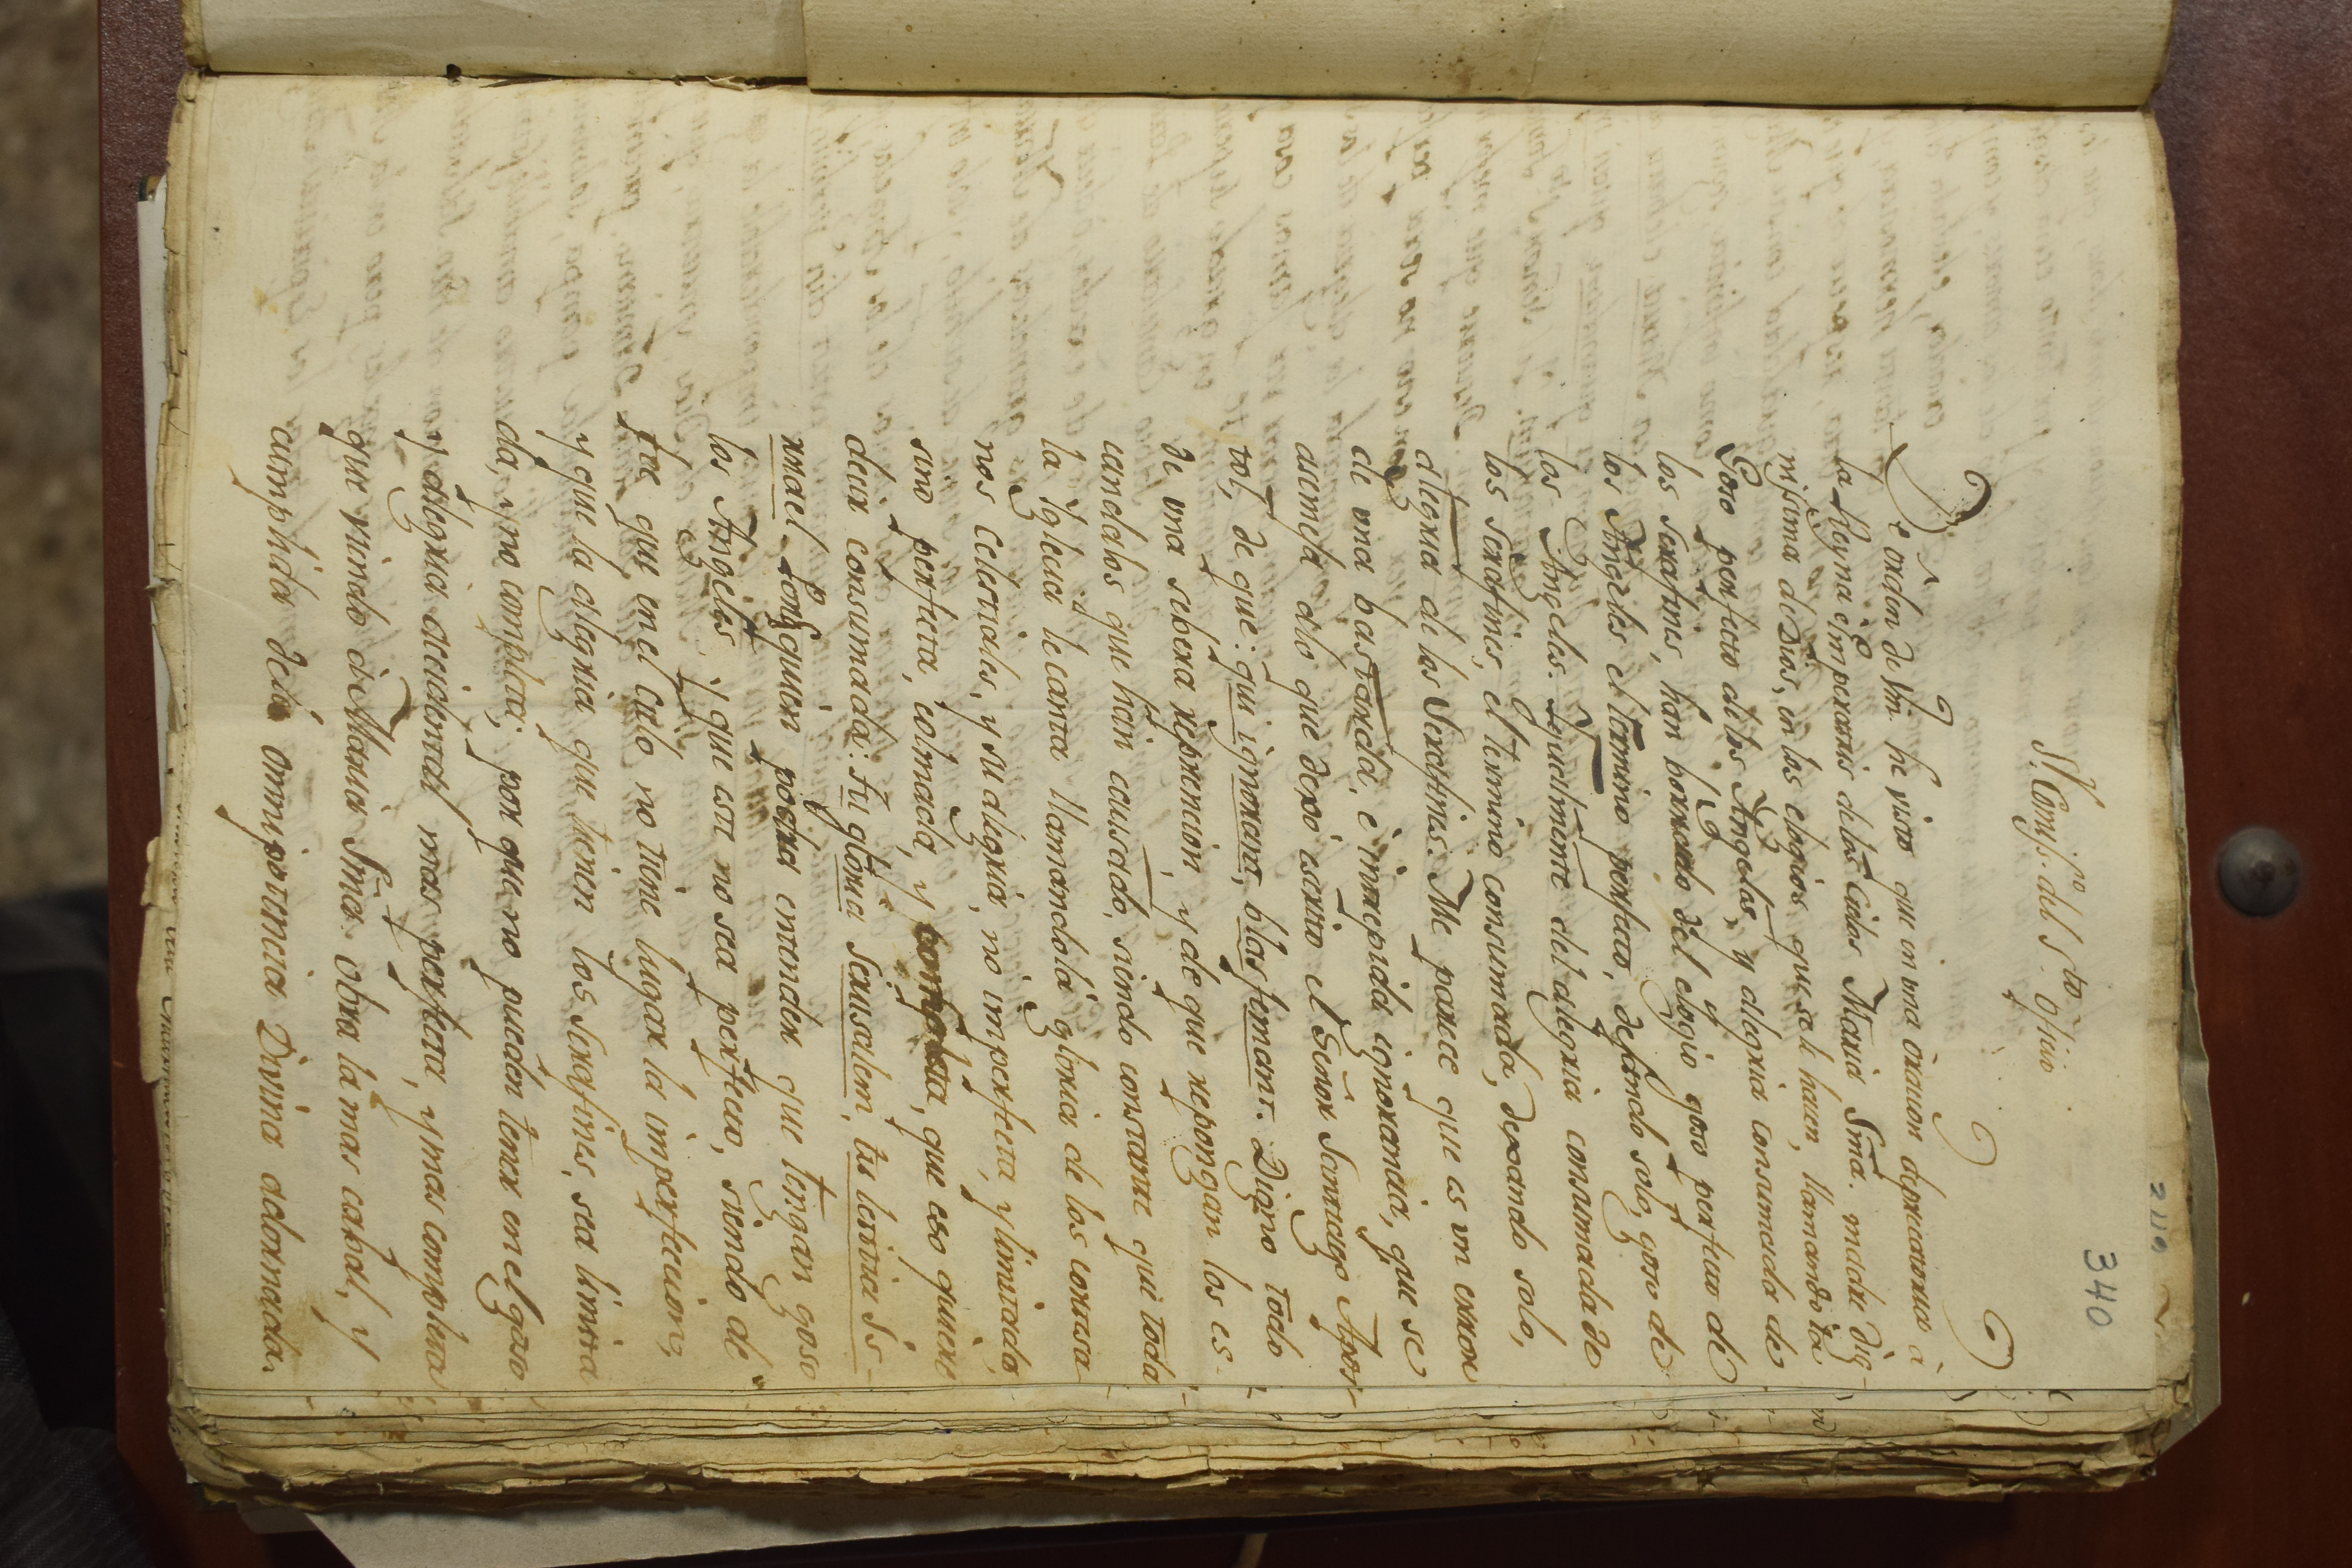 340
Sr. Comisso. del Sto. Oficio
De orden de Vm. he visto que en una oracion deprecatoria à
la Reyna è imperatris de los Cielos Maria Sma. madre Dig-
nissima de Dios, en los elogios que se le hacen, llamandola
Goso perfecto de los Angeles, y alegria consumada de
los serafines, han borrado del elogio goso perfecto de
los Angeles el termino perfecto, dejando solo, goso de
los Angeles. Igualmente del alegria consumada de
los serafines, el termino consumada, dexando solo,
alegria de los Serafines. Me parece que es un error
de una bastarda, è intrepida ignorancia, que se
asimela a lo que dexò escrito el Señor Santiago Apos-
tol, de que: qui ignorant, blasfemant. Digno todo
de una sebera reprencion, y de que repongan los es-
candalos que han causado, siendo constante que toda
la Iglecia le canta llamandola gloria de los cortesa-
nos Celestiales, y su alegria, no imperfecta, y limitada,
sino perfecta, colmada, y completa, que eso quiere
decir consumada: tu gloria Jerusalem, tu letitia Is-
rrael. Y quien podra entender que tengan goso
los Angeles, y que este no sea perfecto, siendo de
fee que en el Cielo no tiene lugar la imperfeccion;
y que la alegria que tienen los serafines, sea limita
da, y no completa; por que no pueden tener en el goso
y alegria accidental mas perfecta, y mas completa
que viendo à Maria Sma. obra la mas cabal, y
cumplida de la omnipotencia Divina adornada.